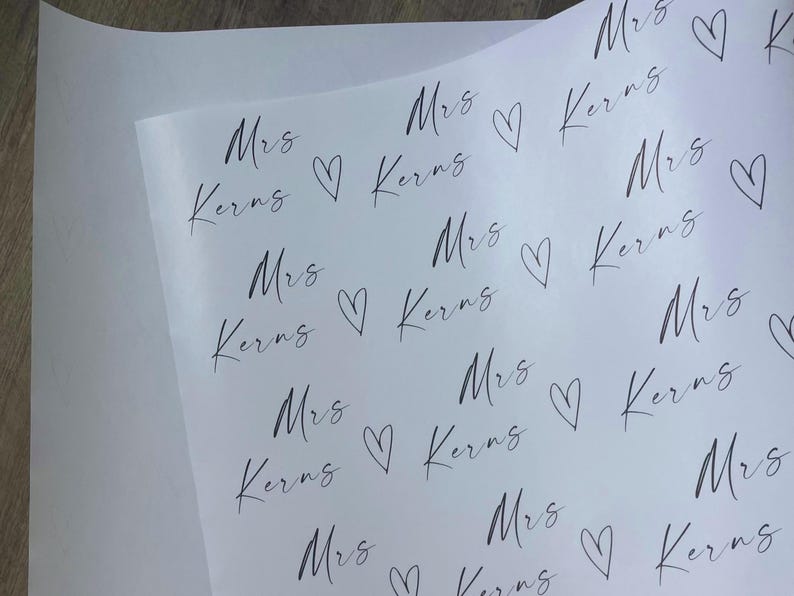 Mrs Mrs Mrs
Kerns Kerns Kerns
Mrs Mrs Mrs
Kerns Kerns Kerns
Mrs Mrs Mrs
Kerns Kerns Kerns
Mrs Mrs Mrs
Kerns Kerns